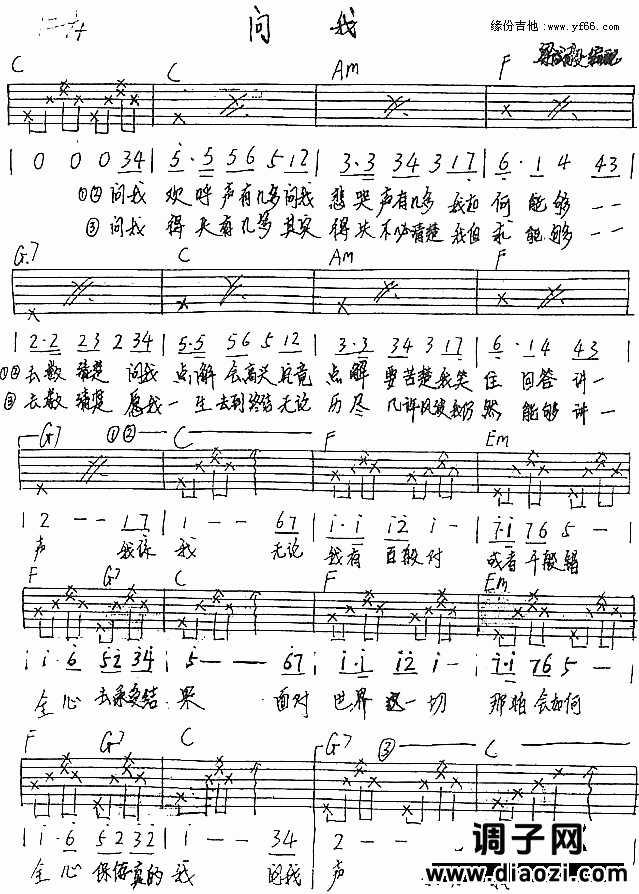 问 我
缘份吉他: www.yf66.com
C C Am F
| 0 0 0 34 | 5·5 56 5 12 | 3·3 34 3 17 | 6·1 4 43
①②问我 欢呼声有几多问我 悲哭声有几多 我如何能够
③问我 得失有几多其实 得失不必清楚 我但求能够
G7 C Am F
| 2·2 23 2 34 | 5·5 56 5 12 | 3·3 34 3 17 | 6·1 4 43
①②去数清楚 问我 点解会高兴究竟 点解要苦楚我笑住回答讲一
③去数清楚 愿我一生去到终结无论 历尽几许风波我仍然能够讲一
G7 ①② C F Em
| 2 - - 17 | 1 - - 67 | i·i i2 i - | 7·i 76 5 - |
声 我系我 无论 我有百般对 或者千般错
F G7 C F Em
i i·6 52 34 | 5 - - 67 | i·i i2 i - | 7·i 76 5 - |
全心去承受结果 面对世界一切 那怕会如何
F G7 C G7 ③ C
| i i·6 52 32 | 1 - - 34 | 2 - -
全心保存真的我 问我 声
调子网
www.diaozi.com